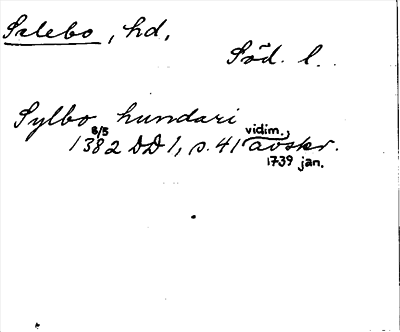 Selebo, hd,
Söd. l.
Sylbo hundari
1382 8/5 DD 1, s. 41 vidim., avskr.
1739 jan.